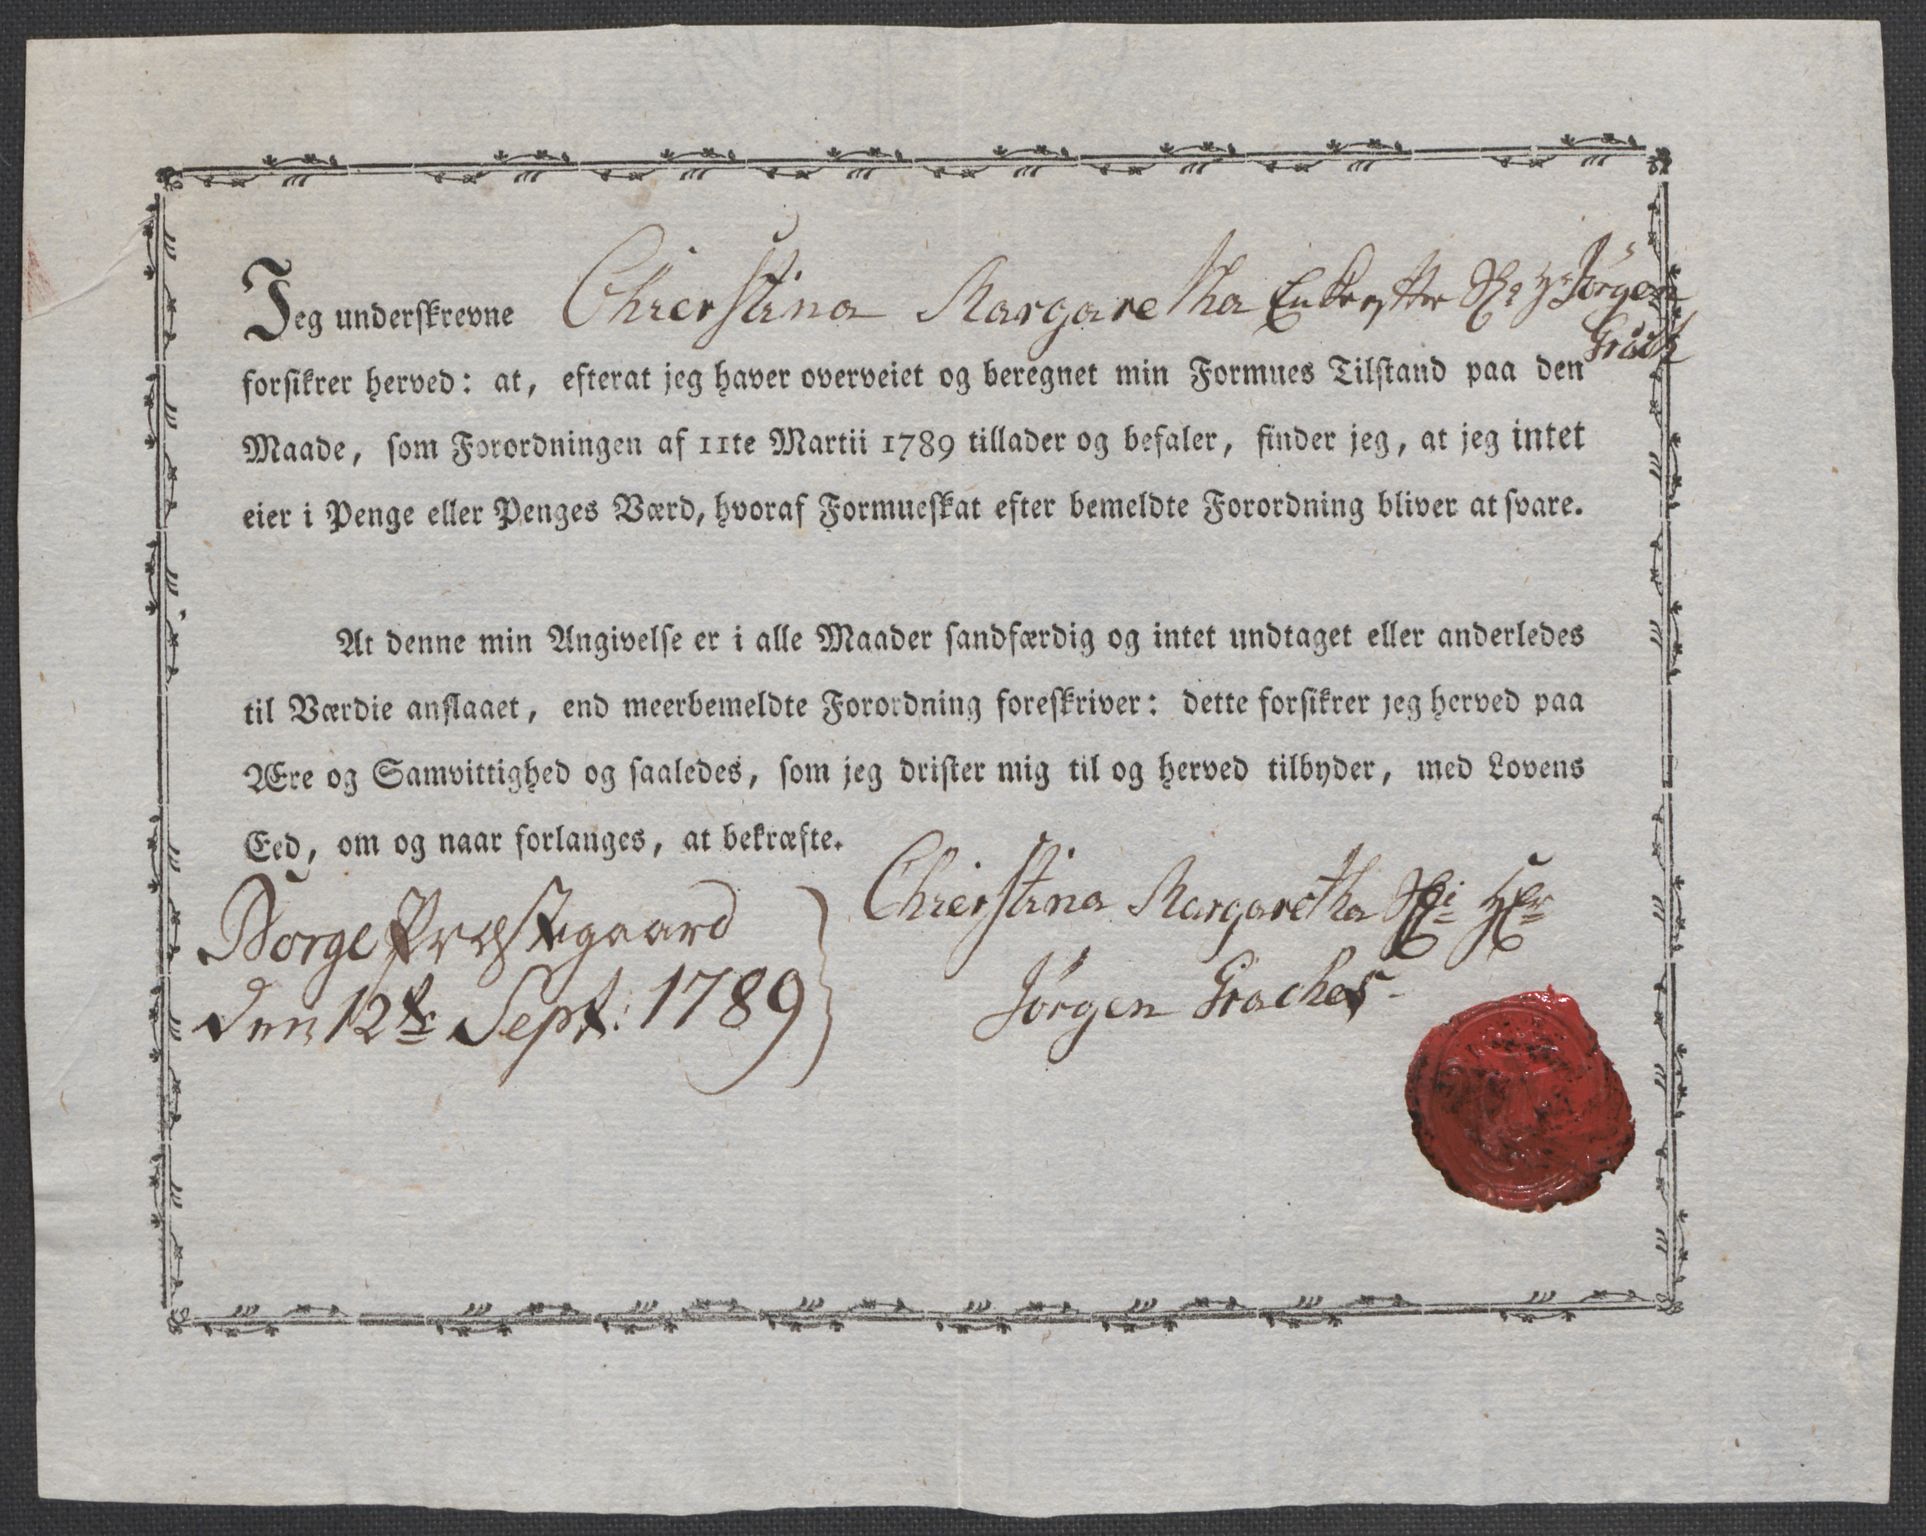 Jeg underskrevne Chierstina Margaretha Hr Jørgen
forsikrer herved: at, efterat jeg haver overveiet og beregnet min Formues Tilstand paa den
Maade, som Forordningen af 11te Martii 1789 tillader og befaler, finder jeg, at jeg intet
eier i Penge eller Penges Værd, hvoraf Formueskat efter bemeldte Forordning bliver at svare.
At denne min Angivelse er i alle Maader sandfærdig og intet undtaget eller anderledes
til Værdie anslaaet, end meerbemeldte Forordning foreskriver: dette forsikrer jeg herved paa
Ære og Samvittighed og saaledes, som jeg drister mig til og herved tilbyder, med Lovens
Eed, om og naar forlanges, at bekræfte.
Borge Præstegaard
den 12t Sept: 1789
Chierstina Margaretha Hr
Jørgen Graches